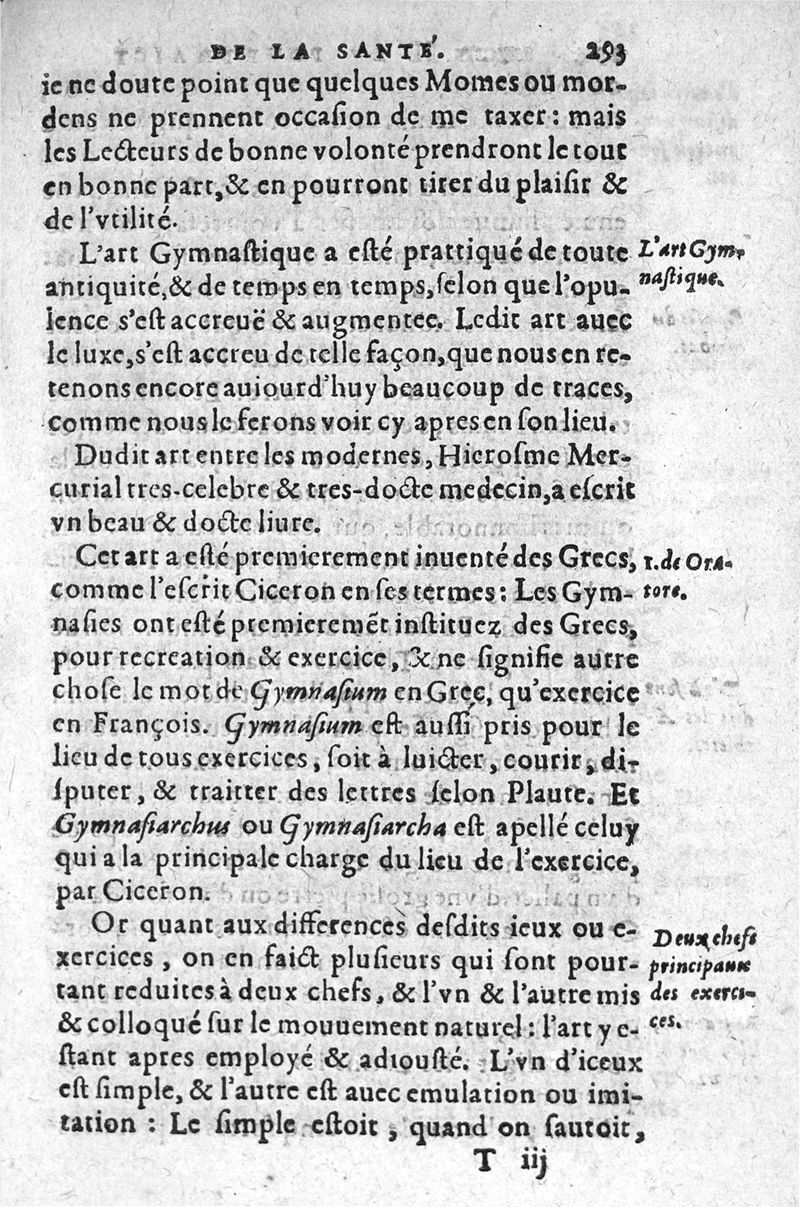 DE LA SANTÉ. 293
ie ne doute point que quelques Momes ou mor-
dens ne prennent occaſion de me taxer: mais
les Lecteurs de bonne volonté prendront le tout
en bonne part, & en pourront tirer du plaiſir &
de l'vtilité.
L'art Gymnaſtique a eſté prattiqué de toute
antiquité, & de temps en temps, ſelon que l'opu-
lence s'eſt accreuë & augmentee. Ledit art auec
le luxe, s'eſt accreu de telle façon, que nous en re-
tenons encore auiourd'huy beaucoup de traces,
comme nous le ferons voir cy apres en ſon lieu.
L'art Gym-
naſtique.
Dudit art entre les modernes, Hieroſme Mer-
curial tres-celebre & tres-docte medecin, a eſcrit
vn beau & docte liure.
Cet art a eſté premierement inuenté des Grecs,
comme l'eſcrit Ciceron en ſes termes: Les Gym-
naſies ont eſté premieremẽt inſtituez des Grecs,
pour recreation & exercice, & ne ſignifie autre
choſe le mot de Gymnaſium en Grec, qu'exercice
en François. Gymnaſium eſt auſſi pris pour le
lieu de tous exercices, ſoit à luicter, courir, di-
ſputer, & traitter des lettres ſelon Plaute. Et
Gymnaſiarchus ou Gymnaſiarcha eſt apellé celuy
qui a la principale charge du lieu de l'exercice,
par Ciceron.
1. de Ora-
tore.
Or quant aux differences deſdits ieux ou e-
xercices, on en faict pluſieurs qui ſont pour-
tant reduites à deux chefs, & l'vn & l'autre mis
& colloqué ſur le mouuement naturel: l'art y e-
ſtant apres employé & adiouſté. L'vn d'iceux
eſt ſimple, & l'autre eſt auec emulation ou imi-
tation: Le ſimple eſtoit, quand on ſautoit,
Deux chefs
principaux
des exerci-
ces.
T iij